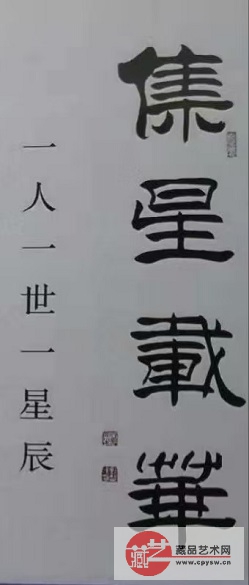 集星載華
一人一世一星辰
藏
藏品艺术网
www.cpysw.cn